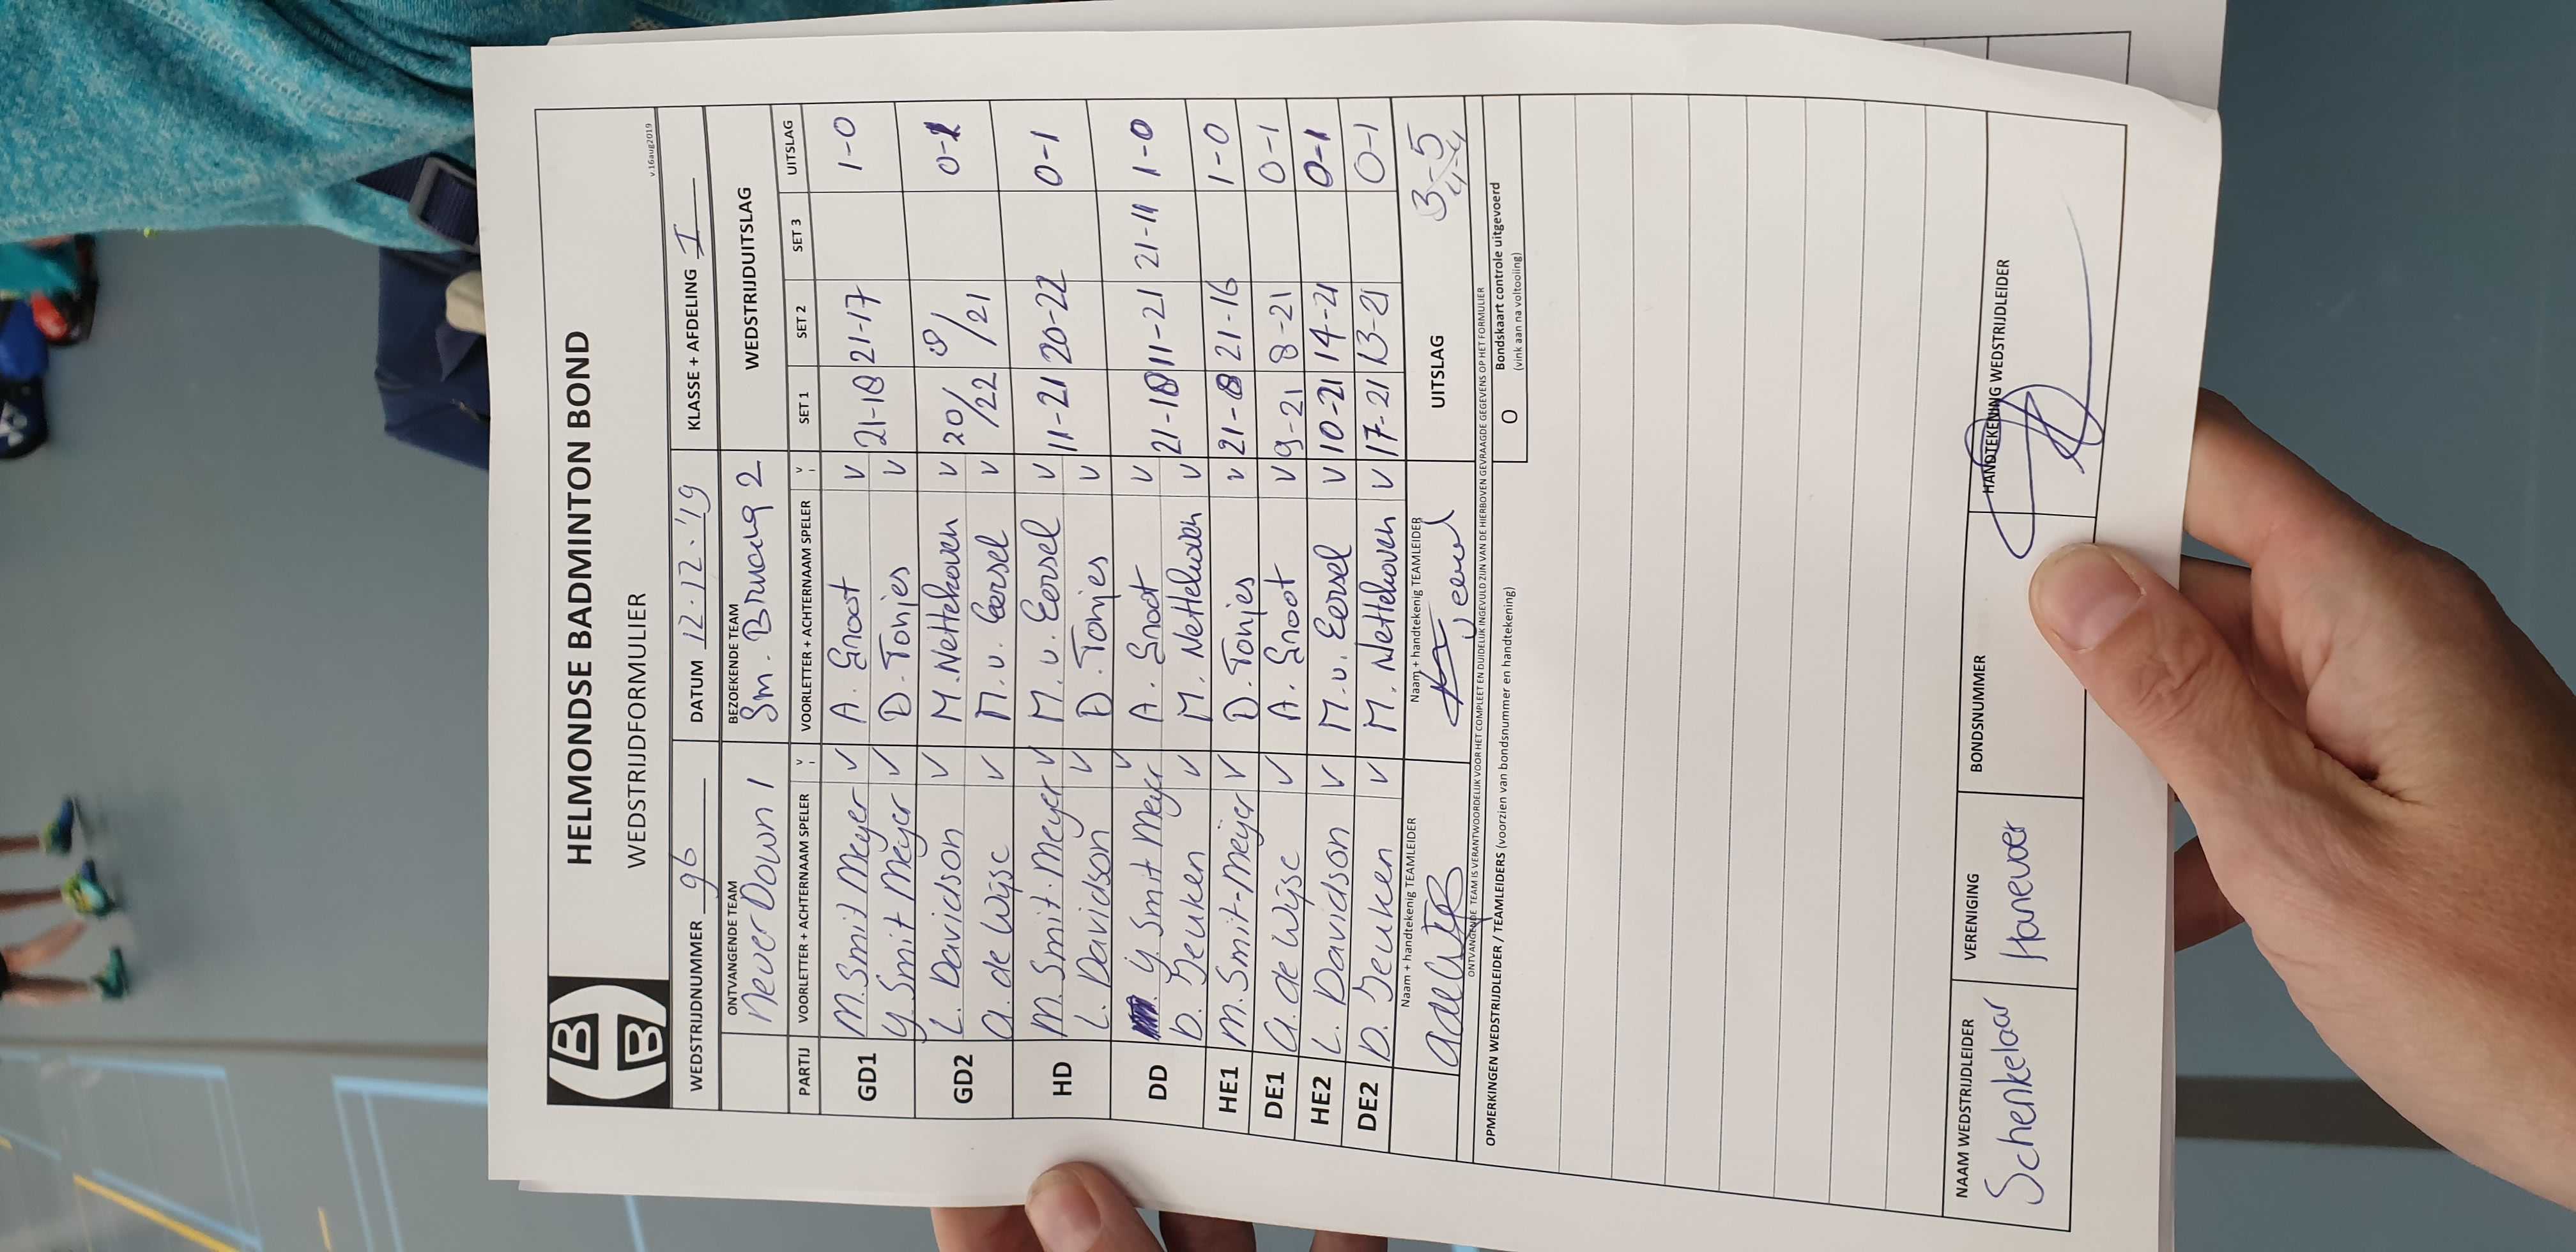 HELMONDSE BADMINTON BOND
WEDSTRIJDFORMULIER
v.16aug2019
WEDSTRIJDNUMMER 96 DATUM 12.12.'19 KLASSE + AFDELING I
ONTVANGENDE TEAM BEZOEKENDE TEAM WEDSTRIJDUITSLAG
Never Down 1 Sm. Brmang 2
PARTIJ VOORLETTER + ACHTERNAAM SPELER V VOORLETTER + ACHTERNAAM SPELER V SET 1 SET 2 SET 3 UITSLAG
GD1 M. Smit Meyer V A. Groot V 21-18 21-17 1-0
Y. Smit Meyer V D. Tonjes V
GD2 L. Davidson V M. Nettekoven V 20/22 8/21 0-1
A. de Wijse V M. v. Eersel V
HD M. Smit-Meyer V M. v. Eersel V 11-21 20-22 0-1
L. Davidson V D. Tonjes V
DD Y. Smit Meyer V A. Groot V 21-18 11-21 21-11 1-0
D. Jeuken V M. Nettekoven V
HE1 M. Smit-Meijer V D. Tonjes V 21-8 21-16 1-0
DE1 A. de Wijse V A. Groot V 9-21 8-21 0-1
HE2 L. Davidson V M. v. Eersel V 10-21 14-21 0-1
DE2 D. Jeuken V M. Nettekoven V 17-21 13-21 0-1
Naam + handtekenig TEAMLEIDER Naam + handtekenig TEAMLEIDER UITSLAG 3-5
4-4
ONTVANGENDE TEAM IS VERANTWOORDELIJK VOOR HET COMPLEET EN DUIDELIJK INGEVULD ZIJN VAN DE HIERBOVEN GEVRAAGDE GEGEVENS OP HET FORMULIER
OPMERKINGEN WEDSTRIJDLEIDER / TEAMLEIDERS (voorzien van bondsnummer en handtekening) O Bondskaart controle uitgevoerd
(vink aan na voltooiing)
NAAM WEDSTRIJDLEIDER VERENIGING BONDSNUMMER HANDTEKENING WEDSTRIJDLEIDER
Schenkelaar Hanevoer